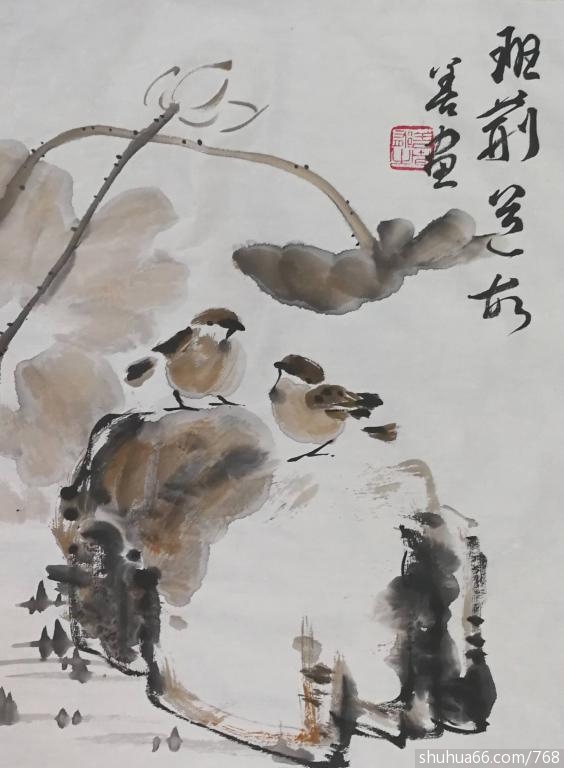 班荆道故
善画
shuhua66.com/768